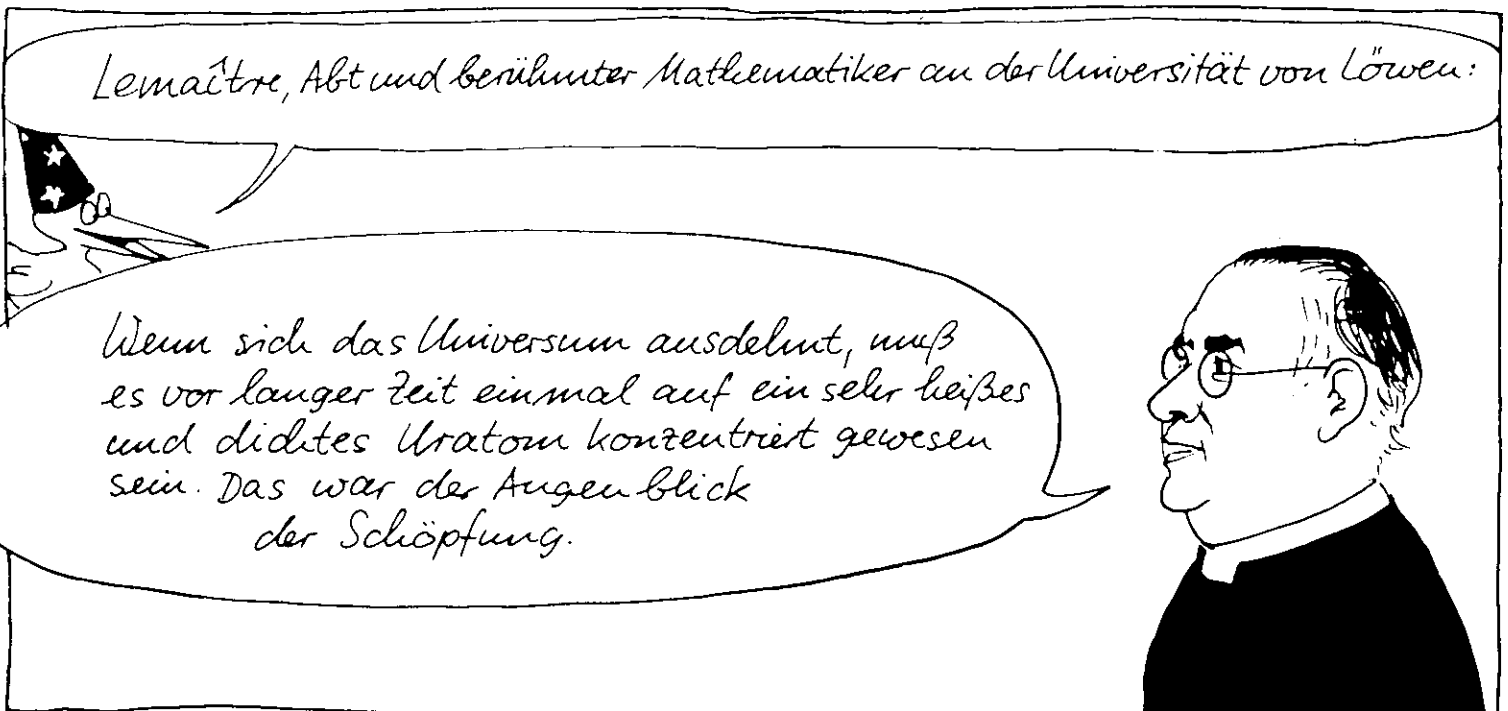 Lemaître, Abt und berühmter Mathematiker an der Universität von Löwen:
Wenn sich das Universum ausdehnt, muß
es vor langer Zeit einmal auf ein sehr heißes
und dichtes Uratom konzentriert gewesen
sein. Das war der Augenblick
der Schöpfung.